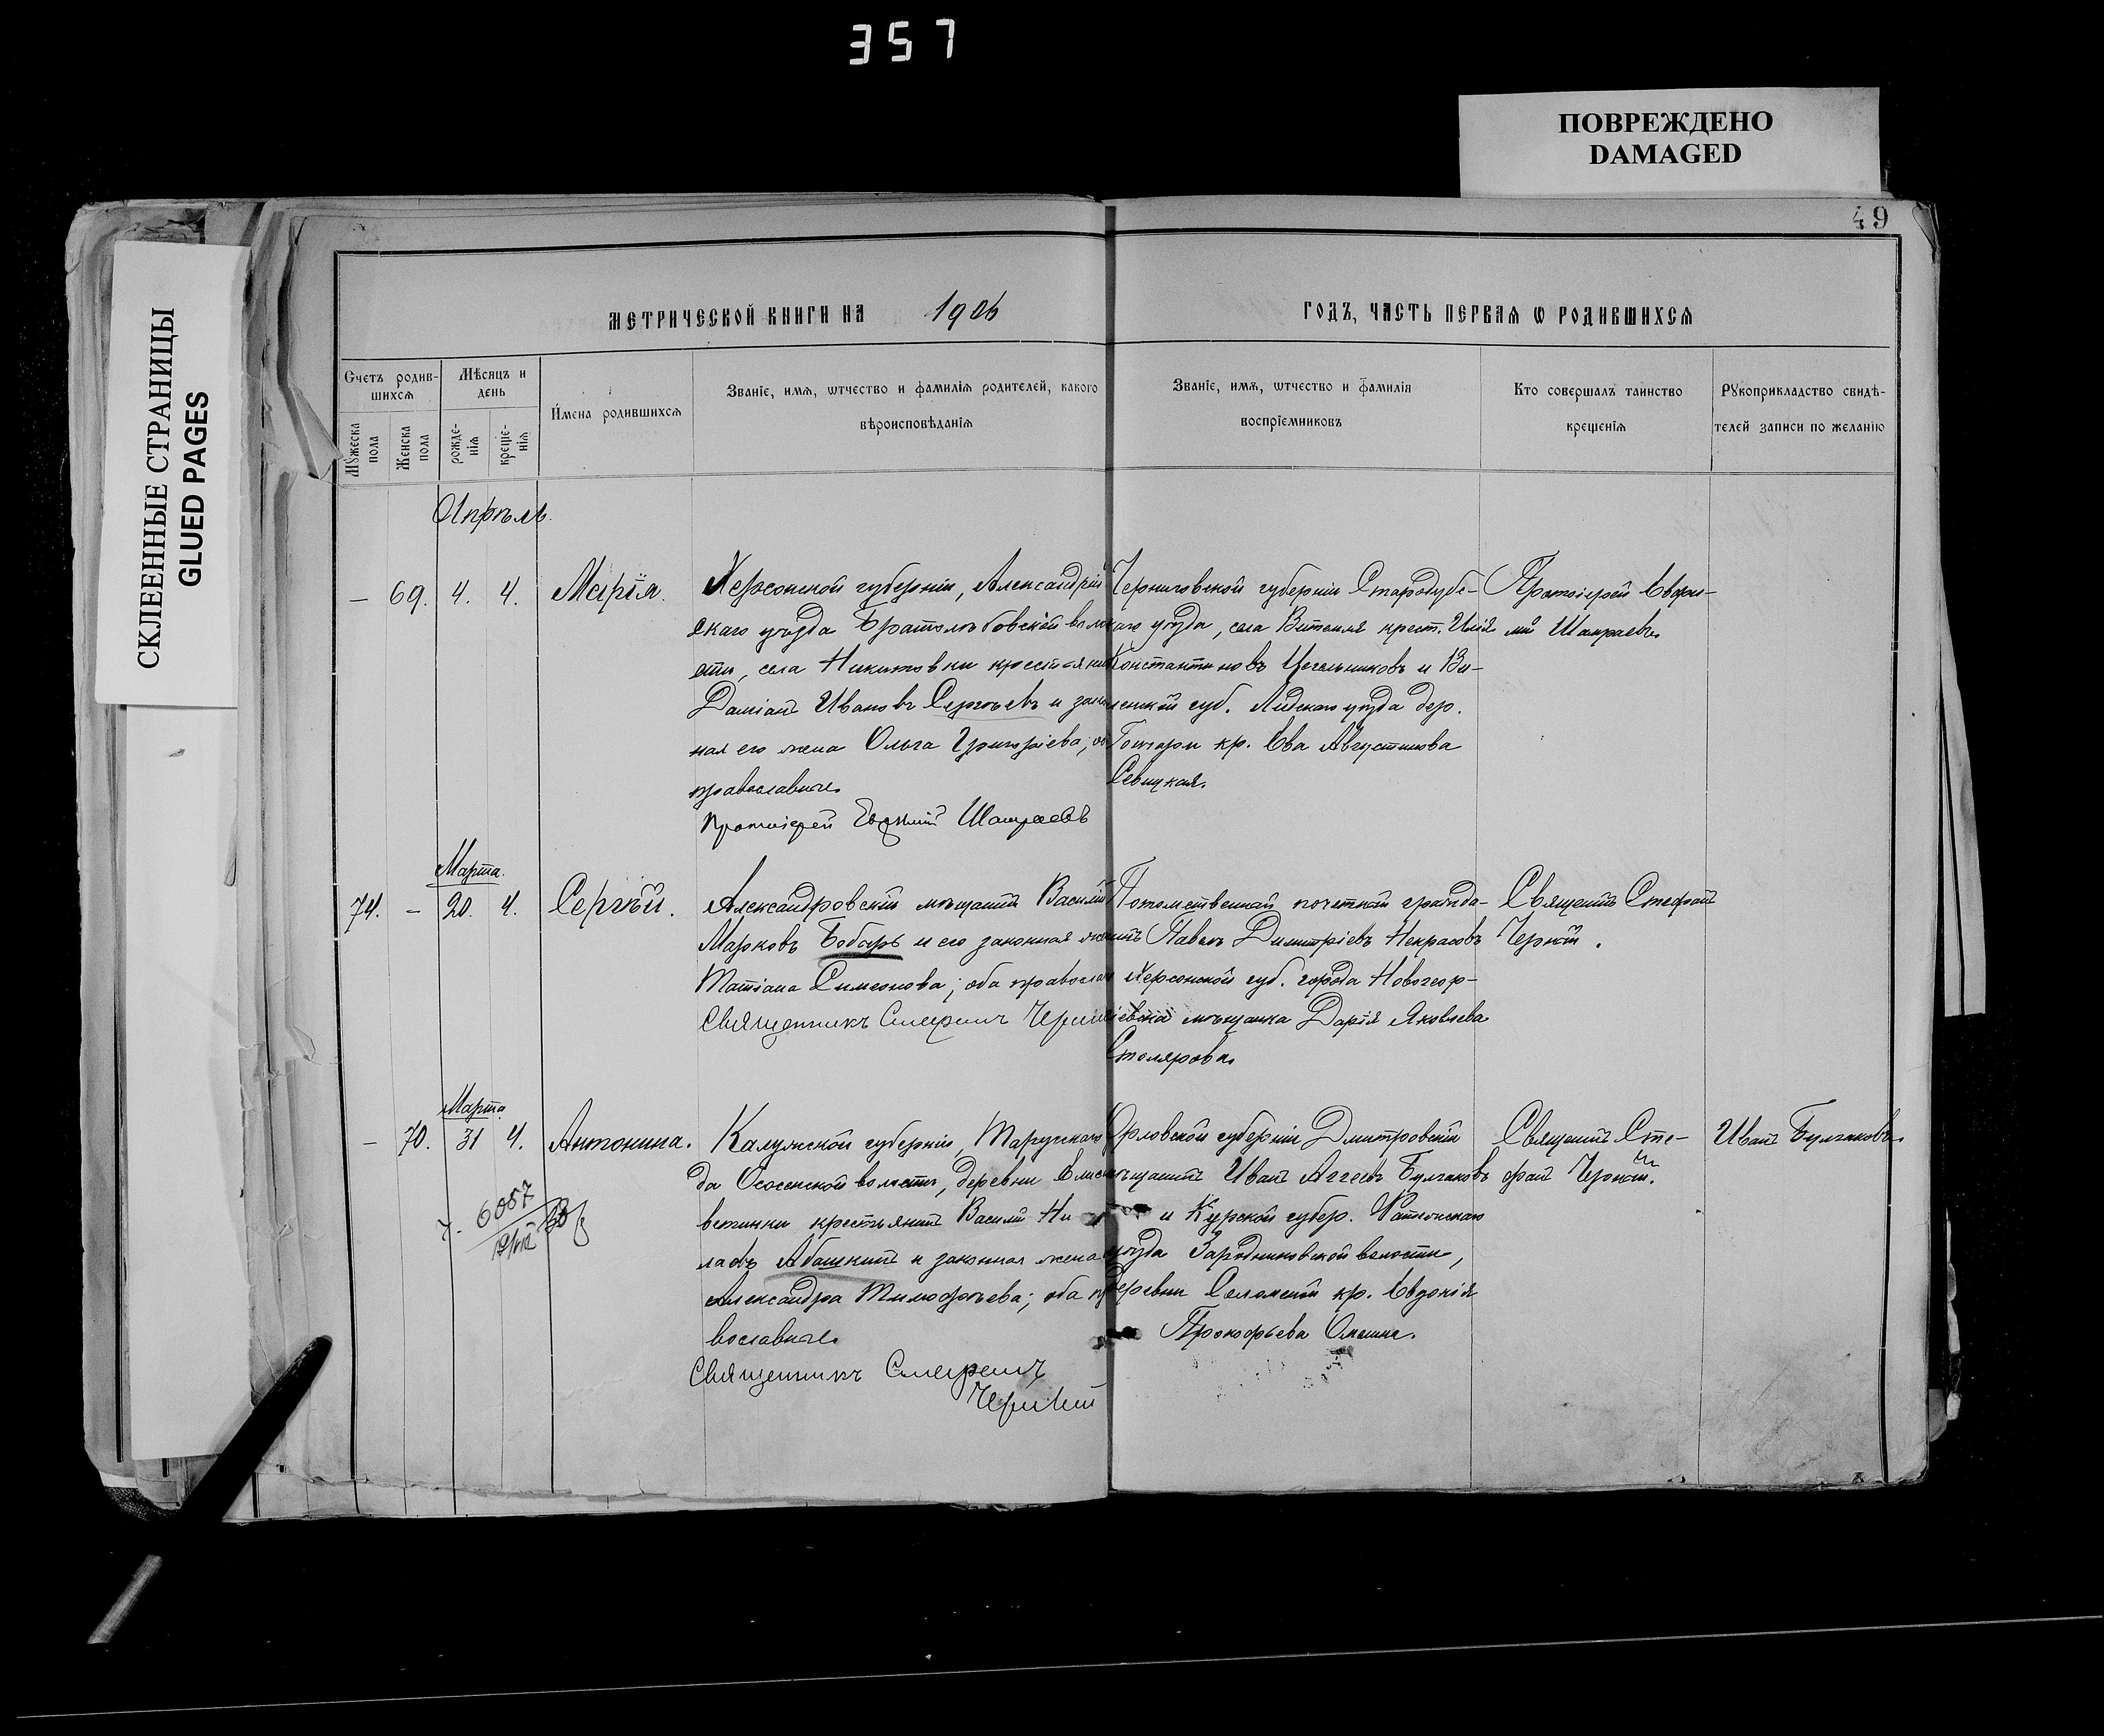 357
ПОВРЕЖДЕНО
DAMAGED
СКЛЕЕННЫЕ СТРАНИЦЫ
GLUED PAGES
49
МЕТРИЧЕСКОЙ КНИГИ НА 1906 ГОДЪ, ЧАСТЬ ПЕРВАЯ Ѡ РОДИВШИХСЯ
Счетъ родив-
шихся
Мужеска пола
Женска пола
Мѣсяцъ и
день
рожде-
нія
креще-
нія
Имена родившихся
Званіе, имя, ѡтчество и фамилія родителей, какого
вѣроисповѣданія
Званіе, имя, ѡтчество и фамилія
воспріемниковъ
Кто совершалъ таинство
крещенія
Рукоприкладство свидѣ-
телей записи по желанію
Апрѣль.
— 69. 4. 4. Марія.
Херсонской губерніи, Александрій
скаго уѣзда Братолюбовской воло
сти, села Никитовки крестьянинъ
Даміанъ Ивановъ Сергѣевъ и закон
ная его жена Ольга Григоріева; об
православные.
Протоіерей Евфимій Шамраевъ
Черниговской губерніи Стародубс-
каго уѣзда, села Витемля крест. Илія
Константиновъ Цегельниковъ и Ви-
ленской губ. Лидскаго уѣзда дер.
Гончари кр. Ева Августинова
Севицкая.
Протоіерей Евфи-
мій Шамраевъ.
Марта.
74. — 20. 4. Сергѣй.
Александровскій мѣщанинъ Василій
Марковъ Бобарь и его законная же
Татіана Симеонова; оба православ
Священникъ Стефанъ Черній
Потомственный почетный гражда-
нинъ Павелъ Димитріевъ Некрасовъ
и Херсонской губ. города Новогеор-
гіевска мѣщанка Дарія Яковлева
Столярова.
Священникъ Стефанъ
Черній.
Марта
— 70. 31 4. Антонина.
7. 6057
Калужской губерніи, Тарускаго
да Ососенской волости, деревни Елиса
ветинки крестьянинъ Василій Ни
лаевъ Абашкинъ и законная жена
Александра Тимофѣева; оба пр
вославные.
Священникъ Стефанъ
Черній
Орловской губерніи Дмитровскій
мѣщанинъ Иванъ Аггеевъ Булгаковъ
и Курской губер.
уѣзда волости,
деревни кр. Евдокія
Прокофьева
Священникъ Сте-
фанъ Черній.
Иванъ Булгаковъ.